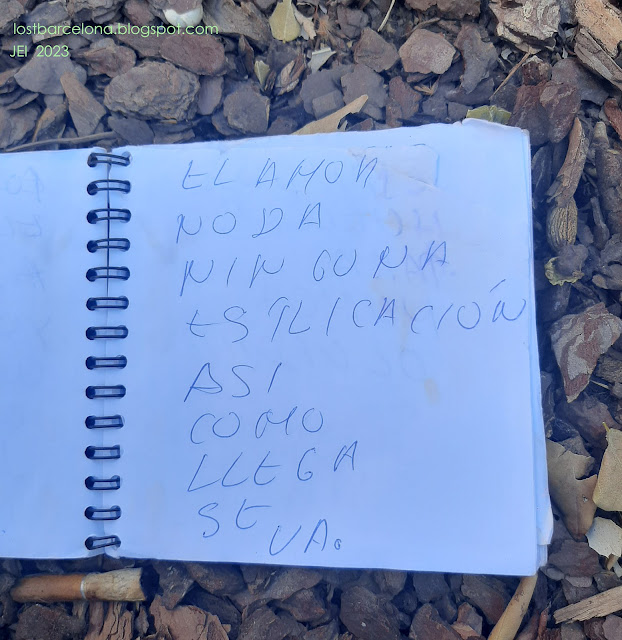 lostbarcelona.blogspot.com
JEI 2023
EL AMOR
NO DA
NINGUNA
ESPLICACIÓN
ASI
COMO
LLEGA
SE
VA.